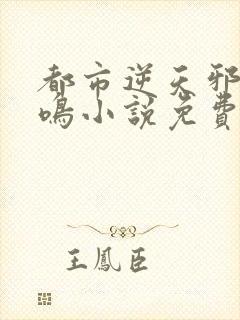 都市逆天邪
鳴小說免費
王鳳臣